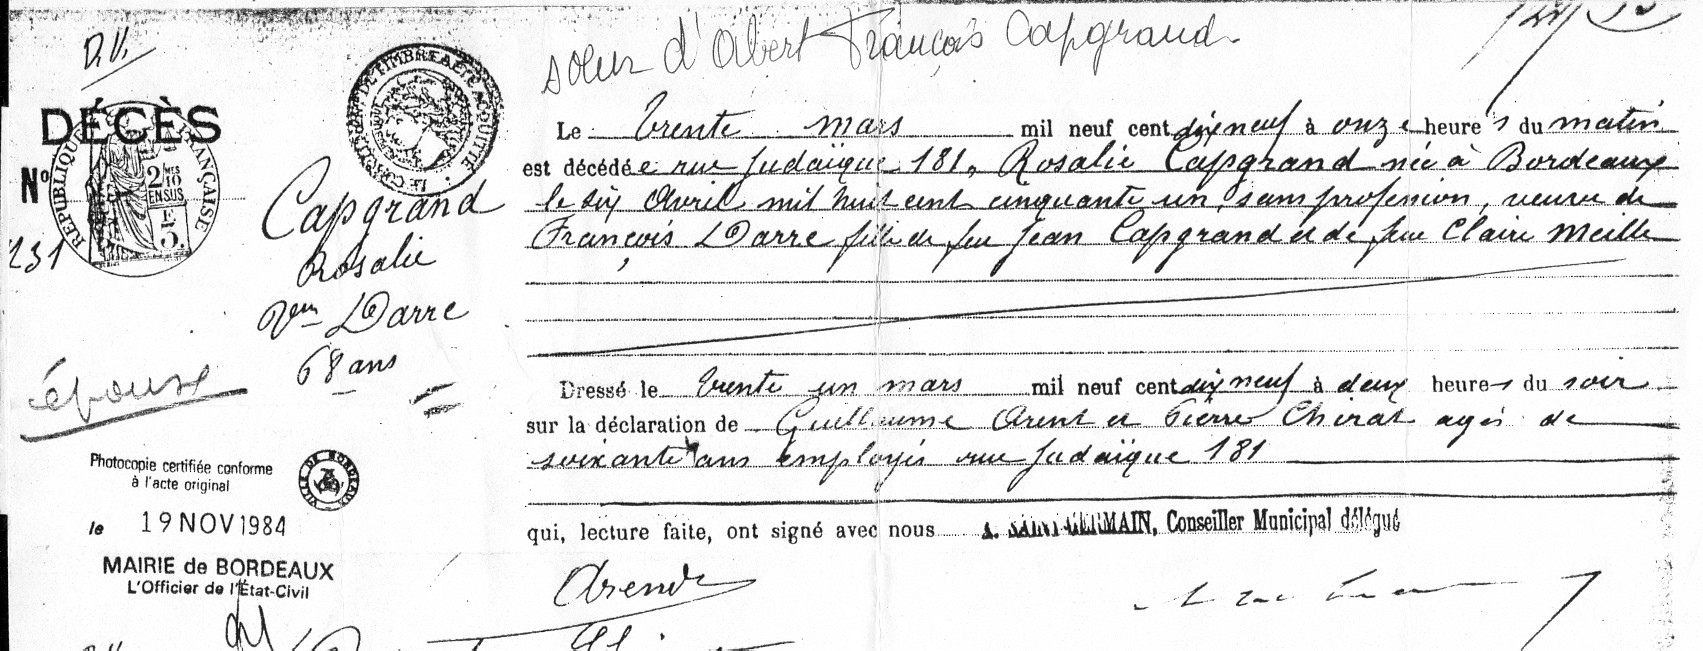 D.V.
soeur d'Albert François Capgrand
DÉCÈS
RÉPUBLIQUE FRANÇAISE
2 MES 10
EN SUS
5
Nº
231
Capgrand
Rosalie
Veuve Darre
68 ans
épouse
Le Trente mars mil neuf cent dix neuf à onze heures du matin
est décédée rue Judaïque 181, Rosalie Capgrand née à Bordeaux
le six Avril mil huit cent cinquante un, sans profession, veuve de
François Darre fille de feu Jean Capgrand et de feue Claire Meille
Dressé le Trente un mars mil neuf cent dix neuf à deux heures du soir
sur la déclaration de Guillaume Arent et Pierre Chirat agés de
soixante ans employés rue Judaïque 181
qui, lecture faite, ont signé avec nous A. SAINT-GERMAIN, Conseiller Municipal délégué
Photocopie certifiée conforme
à l'acte original
VILLE DE BORDEAUX
le 19 NOV 1984
MAIRIE de BORDEAUX
L'Officier de l'État-Civil